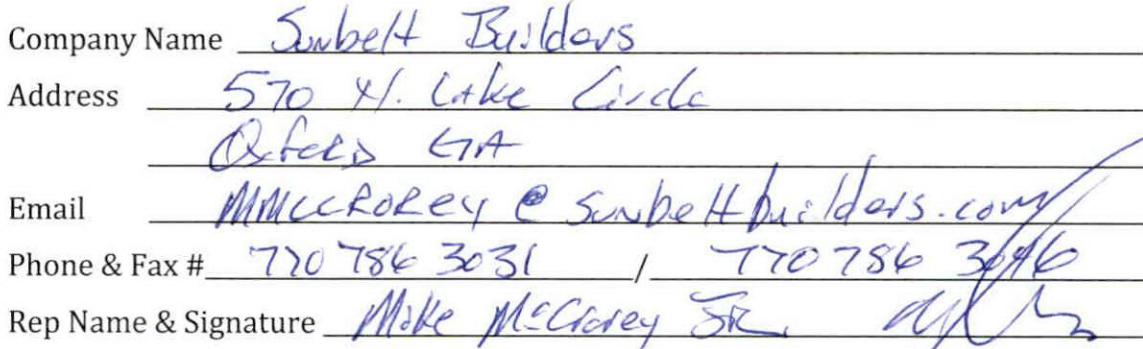 Company Name Sunbelt Builders
Address 570 H. Lake Circle
Oxford GA
Email MMCCROREY @ sunbeltbuilders.com
Phone & Fax # 770 786 3031 / 770 786 3046
Rep Name & Signature Mike McCrorey JR.